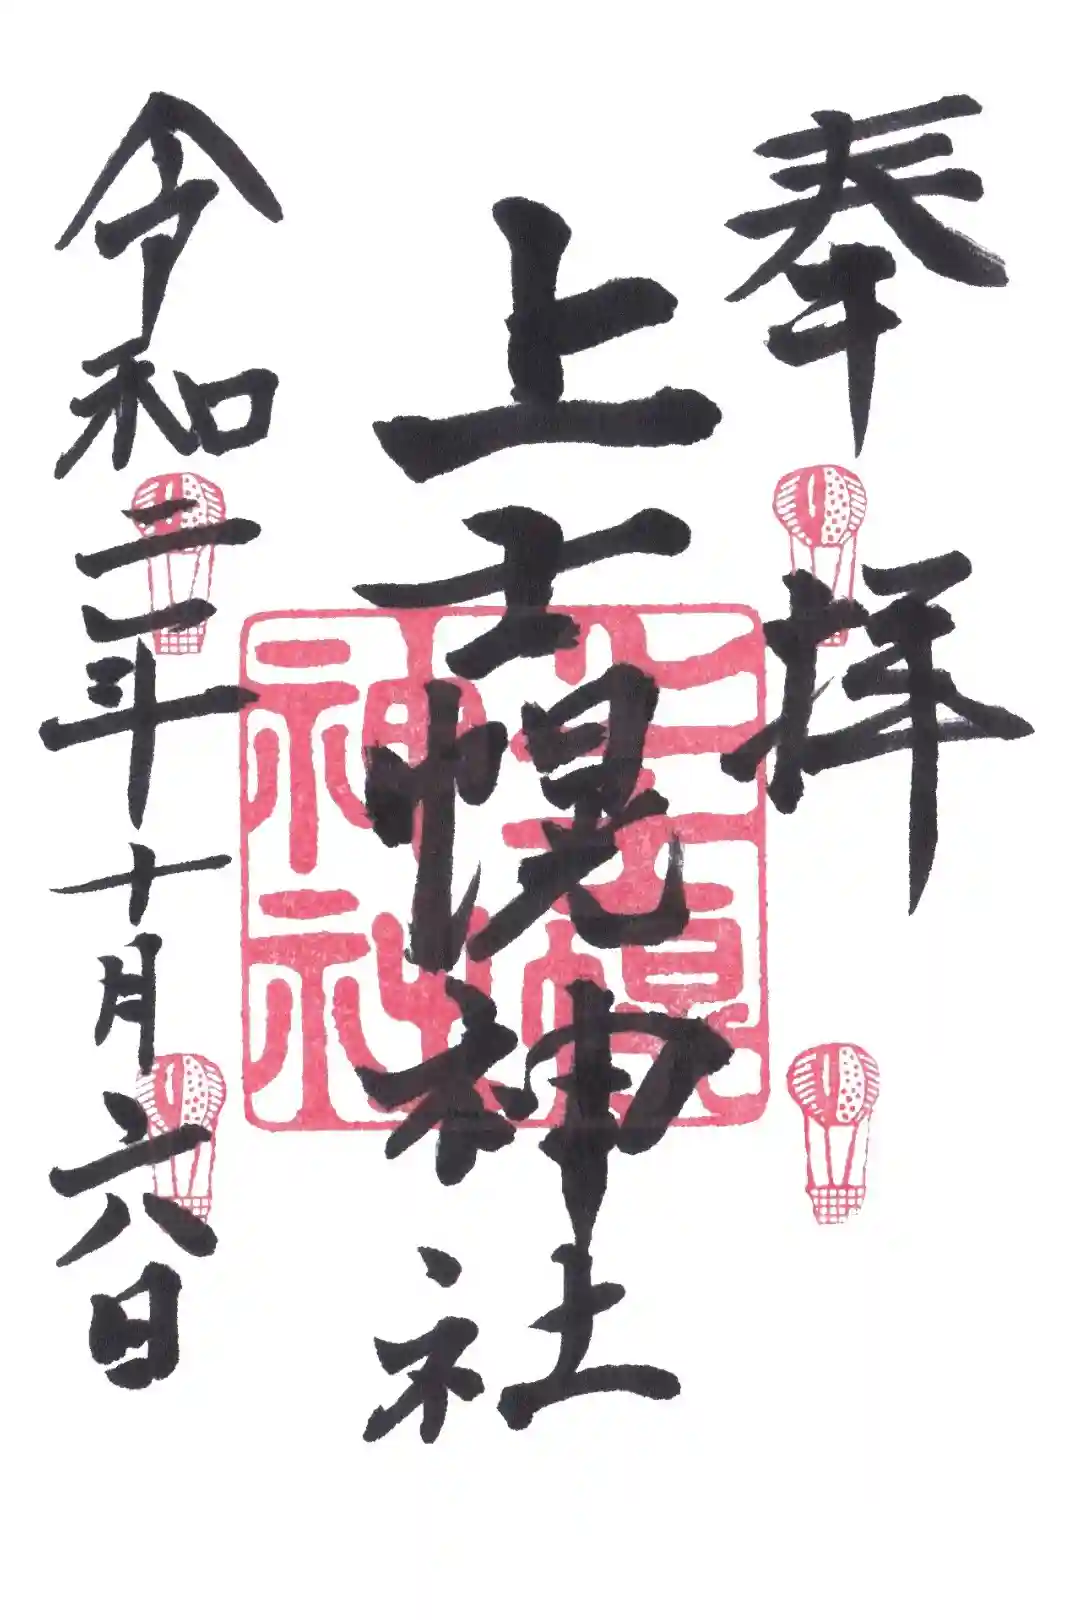 奉拝
上士幌神社
上士幌神社
令和二年十月六日